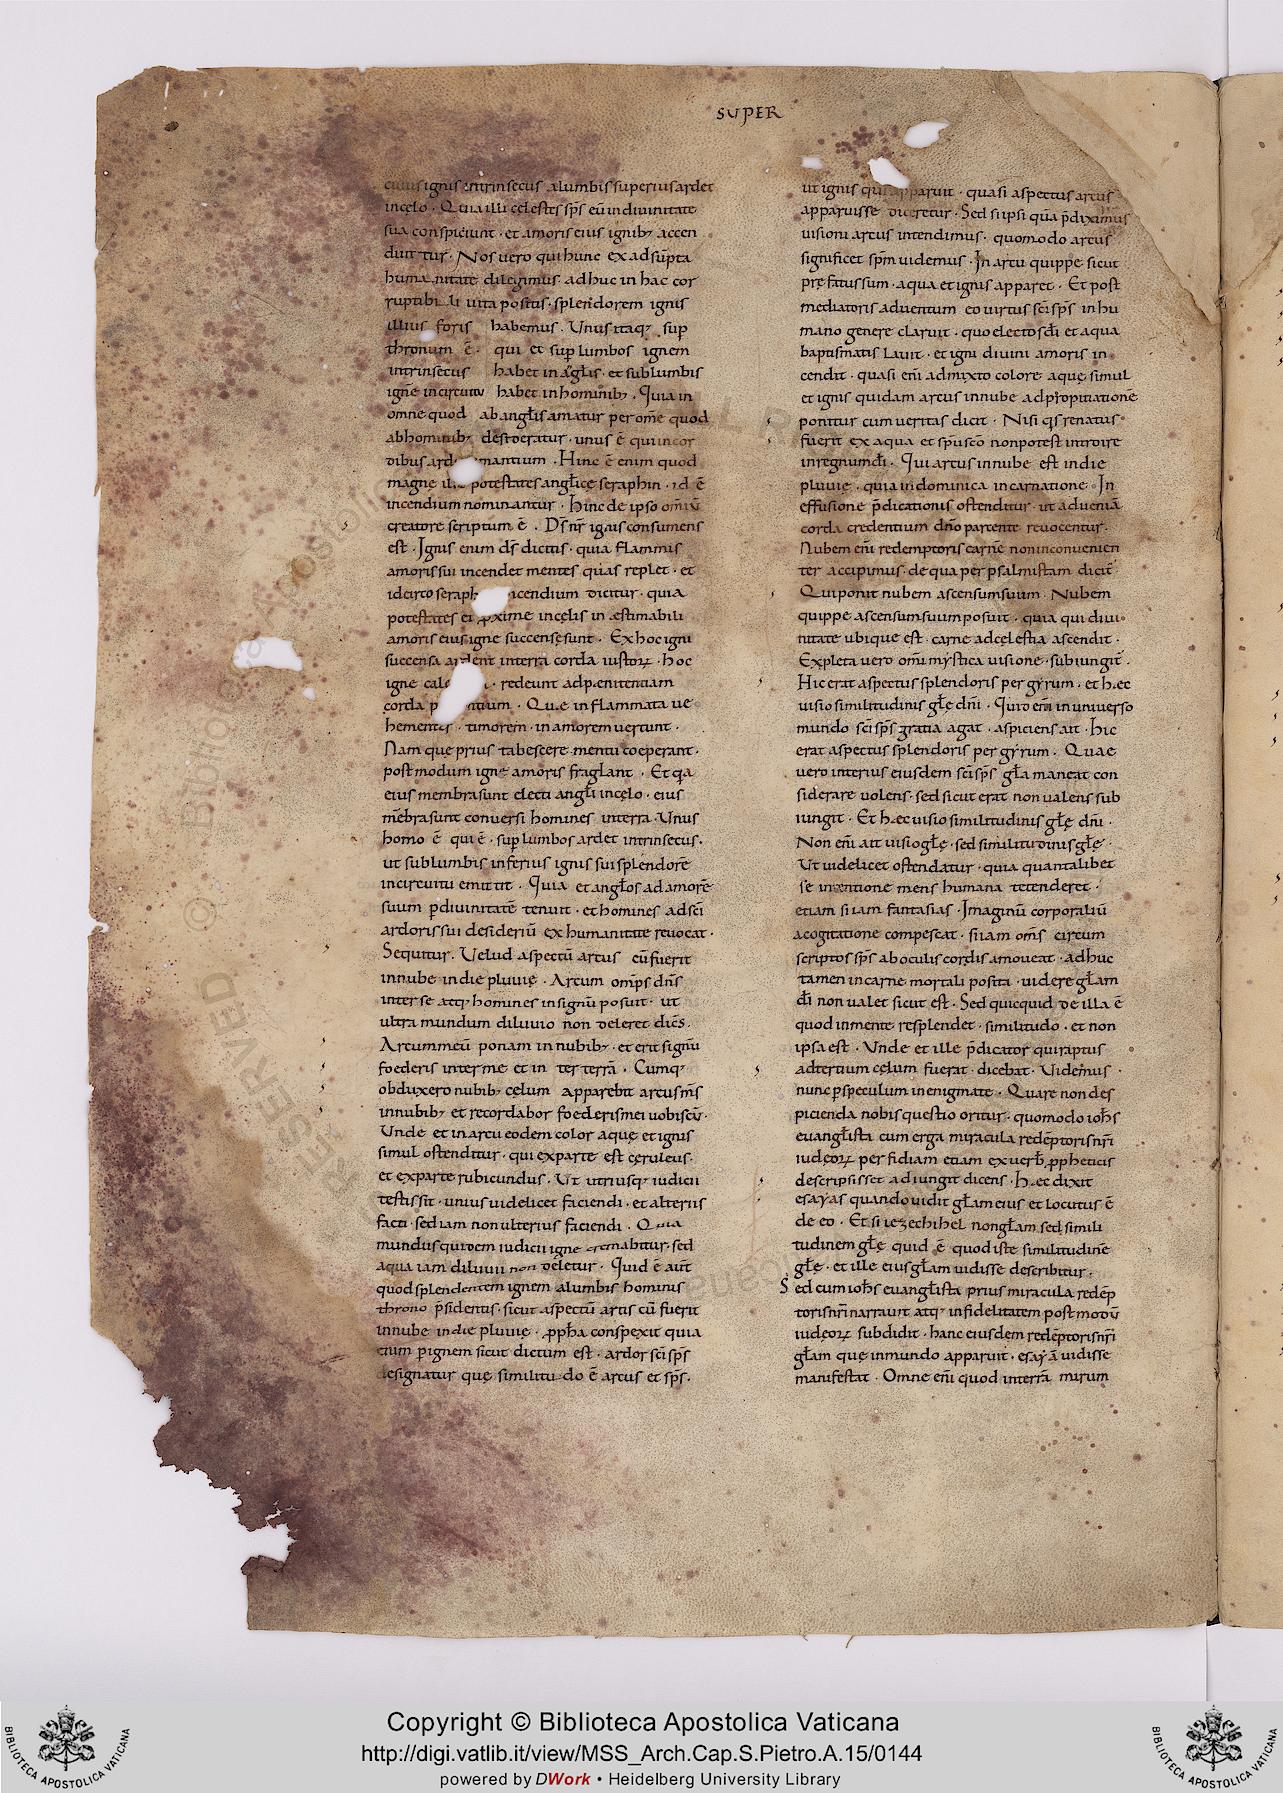 SUPER
cuius ignis intrinsecus a lumbis superius ardet
in celo · Quia illi celestes sp̄s eū in diuinitate
sua conspiciunt · et amoris eius ignib; accen
duntur · Nos uero qui hunc ex adsūpta
humanitate diligimus · adhuc in hac cor
ruptibili uita positis · splendorem ignis
illius foris habemus . Unus itaq; sup̄
thronum ē · qui et sup̄ lumbos ignem
intrinsecus habet in angl̄is · et sub lumbis
ignē in circuitu habet in hominib; . Quia in
omne quod ab angl̄is amatur per om̄e quod
ab hominib; desideratur · unus ē qui in cor
dibus amantium . Hinc ē enim quod
magne potestates angl̄ice seraphin · id ē
incendium nominantur · hinc de ipso om̄iū
creatore scriptum ē . D̄s nr̄ ignis consumens
est · Ignis enim d̄s dicitis · quia flammis
amoris sui incendet mentes quas replet · et
idcirco incendium dicitur · quia
potestates ei p̱xime in celis in estimabili
amoris eius igne succensę sunt . Ex hoc igni
succensa ardent in terra corda iustoꝝ · hoc
igne · redeunt ad pęnitentiam
corda . Quę inflammata ue
hementer · timorem · in amorem uertunt ·
Nam quę prius tabescere metu coeperant ·
postmodum igne amoris fraglant . Et q̄a
eius membra sunt electi angl̄i in cęlo · eius
mēbra sunt conuersi homines in terra · Unus
homo ē qui ē · sup̄ lumbos ardet intrinsecus ·
ut sub lumbis inferius ignis sui splendorē
in circuitu emittit . Quia et angl̄os ad amorē
suum p̄ diuinitatē tenuit · et homines ad sc̄i
ardoris sui desideriū ex humanitate reuocat ·
Sequitur . Uelud aspectū arcus cū fuerit
in nube in die pluuię · Arcum om̄ps dn̄s
inter se atq; homines in signū posuit · ut
ultra mundum diluuio non deleret dic̄s .
Arcum meū ponam in nubib; · et erit signū
foederis inter me et inter terrā . Cumq;
obduxero nubib; cęlum apparebit arcus m̄s
in nubib; et recordabor foederis mei uobiscū ·
Unde et in arcu eodem color aquę et ignis
simul ostenditur · qui ex parte est cęruleus ·
et ex parte rubicundus . Ut utriusq; iudicii
testis sit · unius uidelicet faciendi · et alterius
facti · sed iam non ulterius faciendi . Quia
mundus quidem iudicii igne cremabitur · sed
aqua iam diluuii non deletur · Quid ē aut̄
quod splendentem ignem a lumbis hominis
throno p̄sidentis · sicut aspectū arcus cū fuerit
in nube in die pluuię · p̱ph̄a conspexit quia
p̄ ignem sicut dictum est · ardor sc̄i sp̄s
designatur quę similitudo ē arcus et sp̄s .
ut ignis qui apparuit · quasi aspectus arcus
apparuisse diceretur · Sed si ipsi quā p̄diximus
uisioni arcus intendimus · quomodo arcus
significet sp̄m uidemus . In arcu quippe sicut
pręfatus sum · aqua et ignis apparet . Et post
mediatoris aduentum eo uirtus sc̄i sp̄s in hu
mano genere claruit · quo electos dī et aqua
baptismatis lauit · et igni diuini amoris in
cendit · quasi enī admixto colore aquę simul
et ignis quidam arcus in nube ad propitiatione
ponitur cum ueritas dicit · Nisi q̄s renatus
fuerit ex aqua et sp̄u sc̄o non potest introire
in regnum dī . Qui arcus in nube est in die
pluuię · quia in dominica incarnatione · In
effusione p̄dicationis ostenditur · ut ad ueniā
corda credentium dn̄o parcente reuocentur ·
Nubem enī redemptoris carnē non inconuenien
ter accipimus · de qua per psalmistam dicit̄
Qui ponit nubem ascensum suum . Nubem
quippe ascensum suum posuit . quia qui diui
nitate ubique est · carne ad celestia ascendit .
Expleta uero om̄i mystica uisione · subiungit .
Hic erat aspectus splendoris per gyrum · et hęc
uisio similitudinis gl̄ę dn̄i . Quid enī in uniuerso
mundo sc̄i sp̄s gratia agat · aspiciens ait · hic
erat aspectus splendoris per gyrum . Quae
uero interius eiusdem sc̄i sp̄s gl̄a maneat con
siderare uolens · sed sicut erat non ualens sub
iungit · Et hęc uisio similitudinis gl̄ę dn̄i .
Non enī ait uisio gl̄ę · sed similitudinis gl̄ę ·
Ut uidelicet ostendatur · quia quantalibet
se intentione mens humana tetenderet ·
etiam si iam fantasias · Imaginū corporaliū
a cogitatione compescat · si iam om̄s circum
scriptos sp̄s ab oculis cordis amoueat · adhuc
tamen in carne mortali posita · uidere gl̄am
dī non ualet sicut est · Sed quicquid de illa ē
quod in mente resplendet · similitudo · et non
ipsa est . Unde et ille p̄dicator qui raptus
ad tertium cęlum fuerat · dicebat · Uidemus ·
nunc p̄ speculum in enigmate · Quare non des
picienda nobis questio oritur · quomodo ioh̄s
euangl̄ista cum erga miracula redēptoris nr̄i
iudęoꝝ perfidiam etiam ex uerb̄ p̱pheticis
descripsisset adiungit dicens · hęc dixit
esayas quando uidit gl̄am eius et locutus ē
de eo · Et si iezechihel non gl̄am sed simili
tudinem gl̄ę quid ē quod iste similitudinē
gl̄ę · et ille eius gl̄am uidisse describitur .
Sed cum ioh̄s euangl̄ista prius miracula redēp
toris nr̄i narraret atq; infidelitatem postmodū
iudęoꝝ subdidit · hanc eiusdem redēptoris nr̄i
gl̄am quę in mundo apparuit · esayā uidisse
manifestat · Omne enī quod in terrā mirum
Copyright © Biblioteca Apostolica Vaticana
http://digi.vatlib.it/view/MSS_Arch.Cap.S.Pietro.A.15/0144
powered by DWork • Heidelberg University Library
BIBLIOTECA APOSTOLICA VATICANA
BIBLIOTECA APOSTOLICA VATICANA